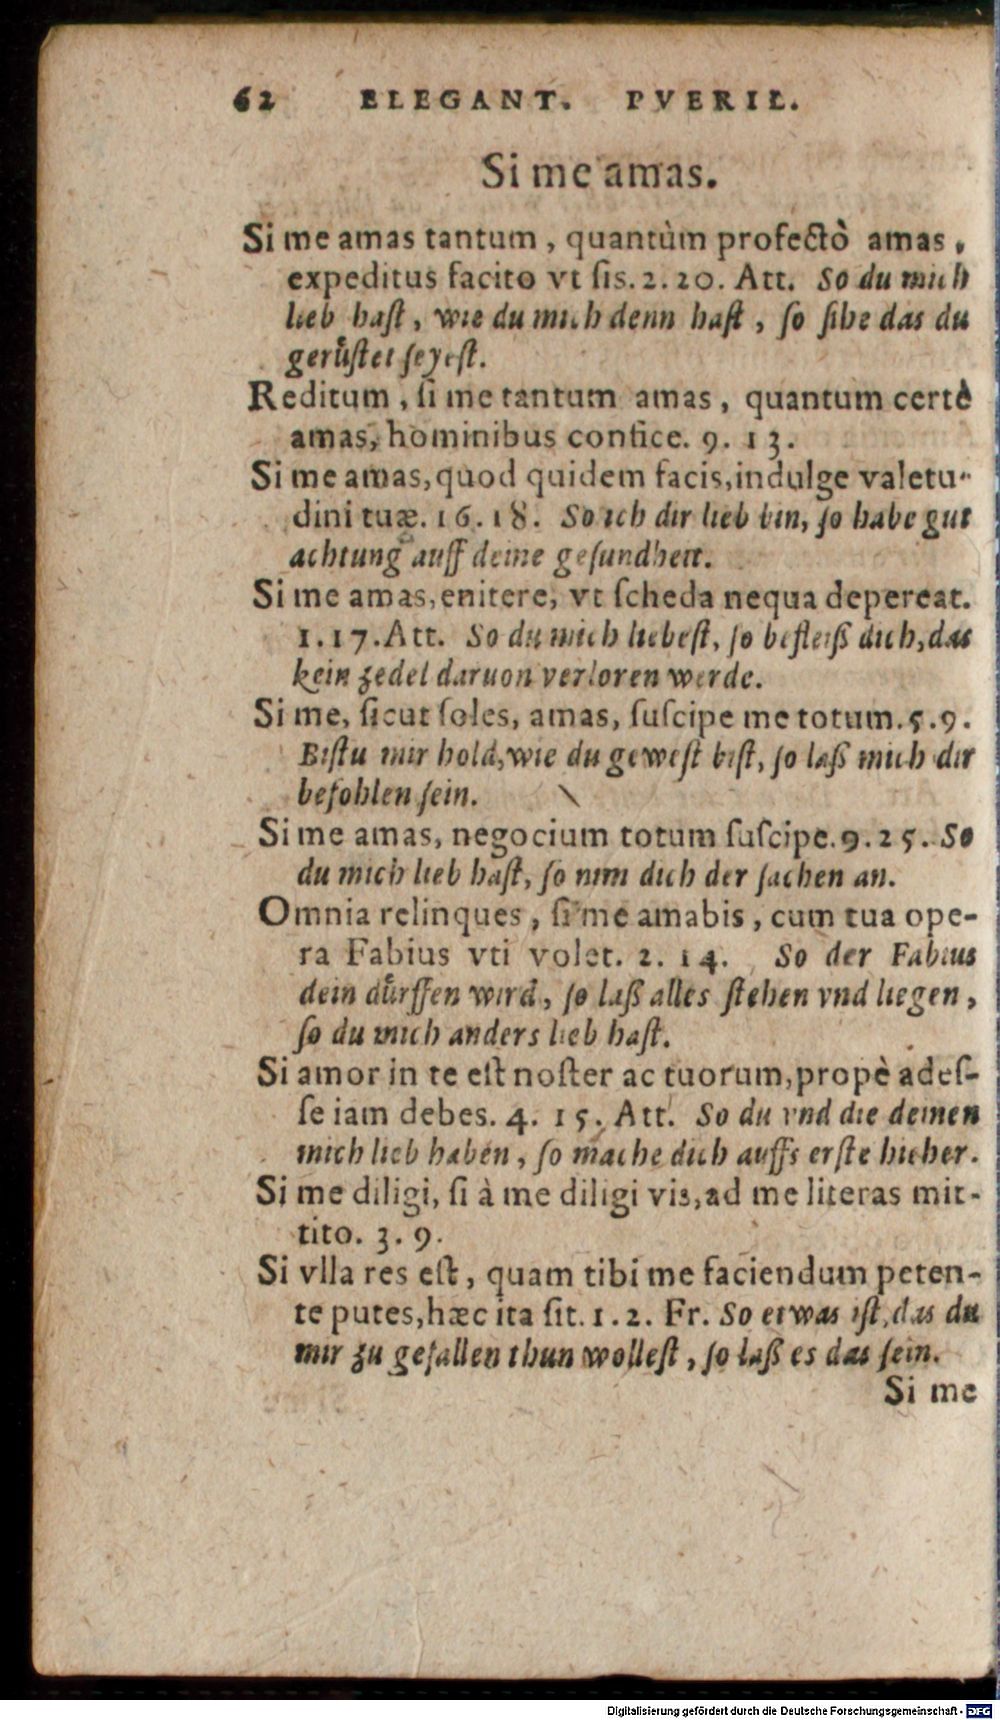 62 ELEGANT. PVERIL.
Si me amas.
Si me amas tantum, quantùm profectò amas,
expeditus facito vt ſis. 2. 20. Att. So du mich
lieb haſt, wie du mich denn haſt, ſo ſihe das du
gerůſtet ſeyeſt.
Reditum, ſi me tantum amas, quantum certè
amas, hominibus confice. 9. 13.
Si me amas, quod quidem facis, indulge valetu-
dini tuæ. 16. 18. So ich dir lieb bin, ſo habe gut
achtung auff deine geſundheit.
Si me amas, enitere, vt ſcheda nequa depereat.
1. 17. Att. So du mich liebeſt, ſo befleiß dich, das
kein zedel daruon verloren werde.
Si me, ſicut ſoles, amas, ſuſcipe me totum. 5. 9.
Biſtu mir hold, wie du geweſt biſt, ſo laß mich dir
befohlen ſein.
Si me amas, negocium totum ſuſcipe. 9. 25. So
du mich lieb haſt, ſo nim dich der ſachen an.
Omnia relinques, ſi me amabis, cum tua ope-
ra Fabius vti volet. 2. 14. So der Fabius
dein důrffen wird, ſo laß alles ſtehen vnd liegen,
ſo du mich anders lieb haſt.
Si amor in te eſt noſter ac tuorum, propè adeſ-
ſe iam debes. 4. 15. Att. So du vnd die deinen
mich lieb haben, ſo mache dich auffs erſte hieher.
Si me diligi, ſi à me diligi vis, ad me literas mit-
tito. 3. 9.
Si vlla res eſt, quam tibi me faciendum peten-
te putes, hæc ita ſit. 1. 2. Fr. So etwas iſt, das du
mir zu gefallen thun wolleſt, ſo laß es das ſein.
Si me
Digitalisierung gefördert durch die Deutsche Forschungsgemeinschaft - DFG